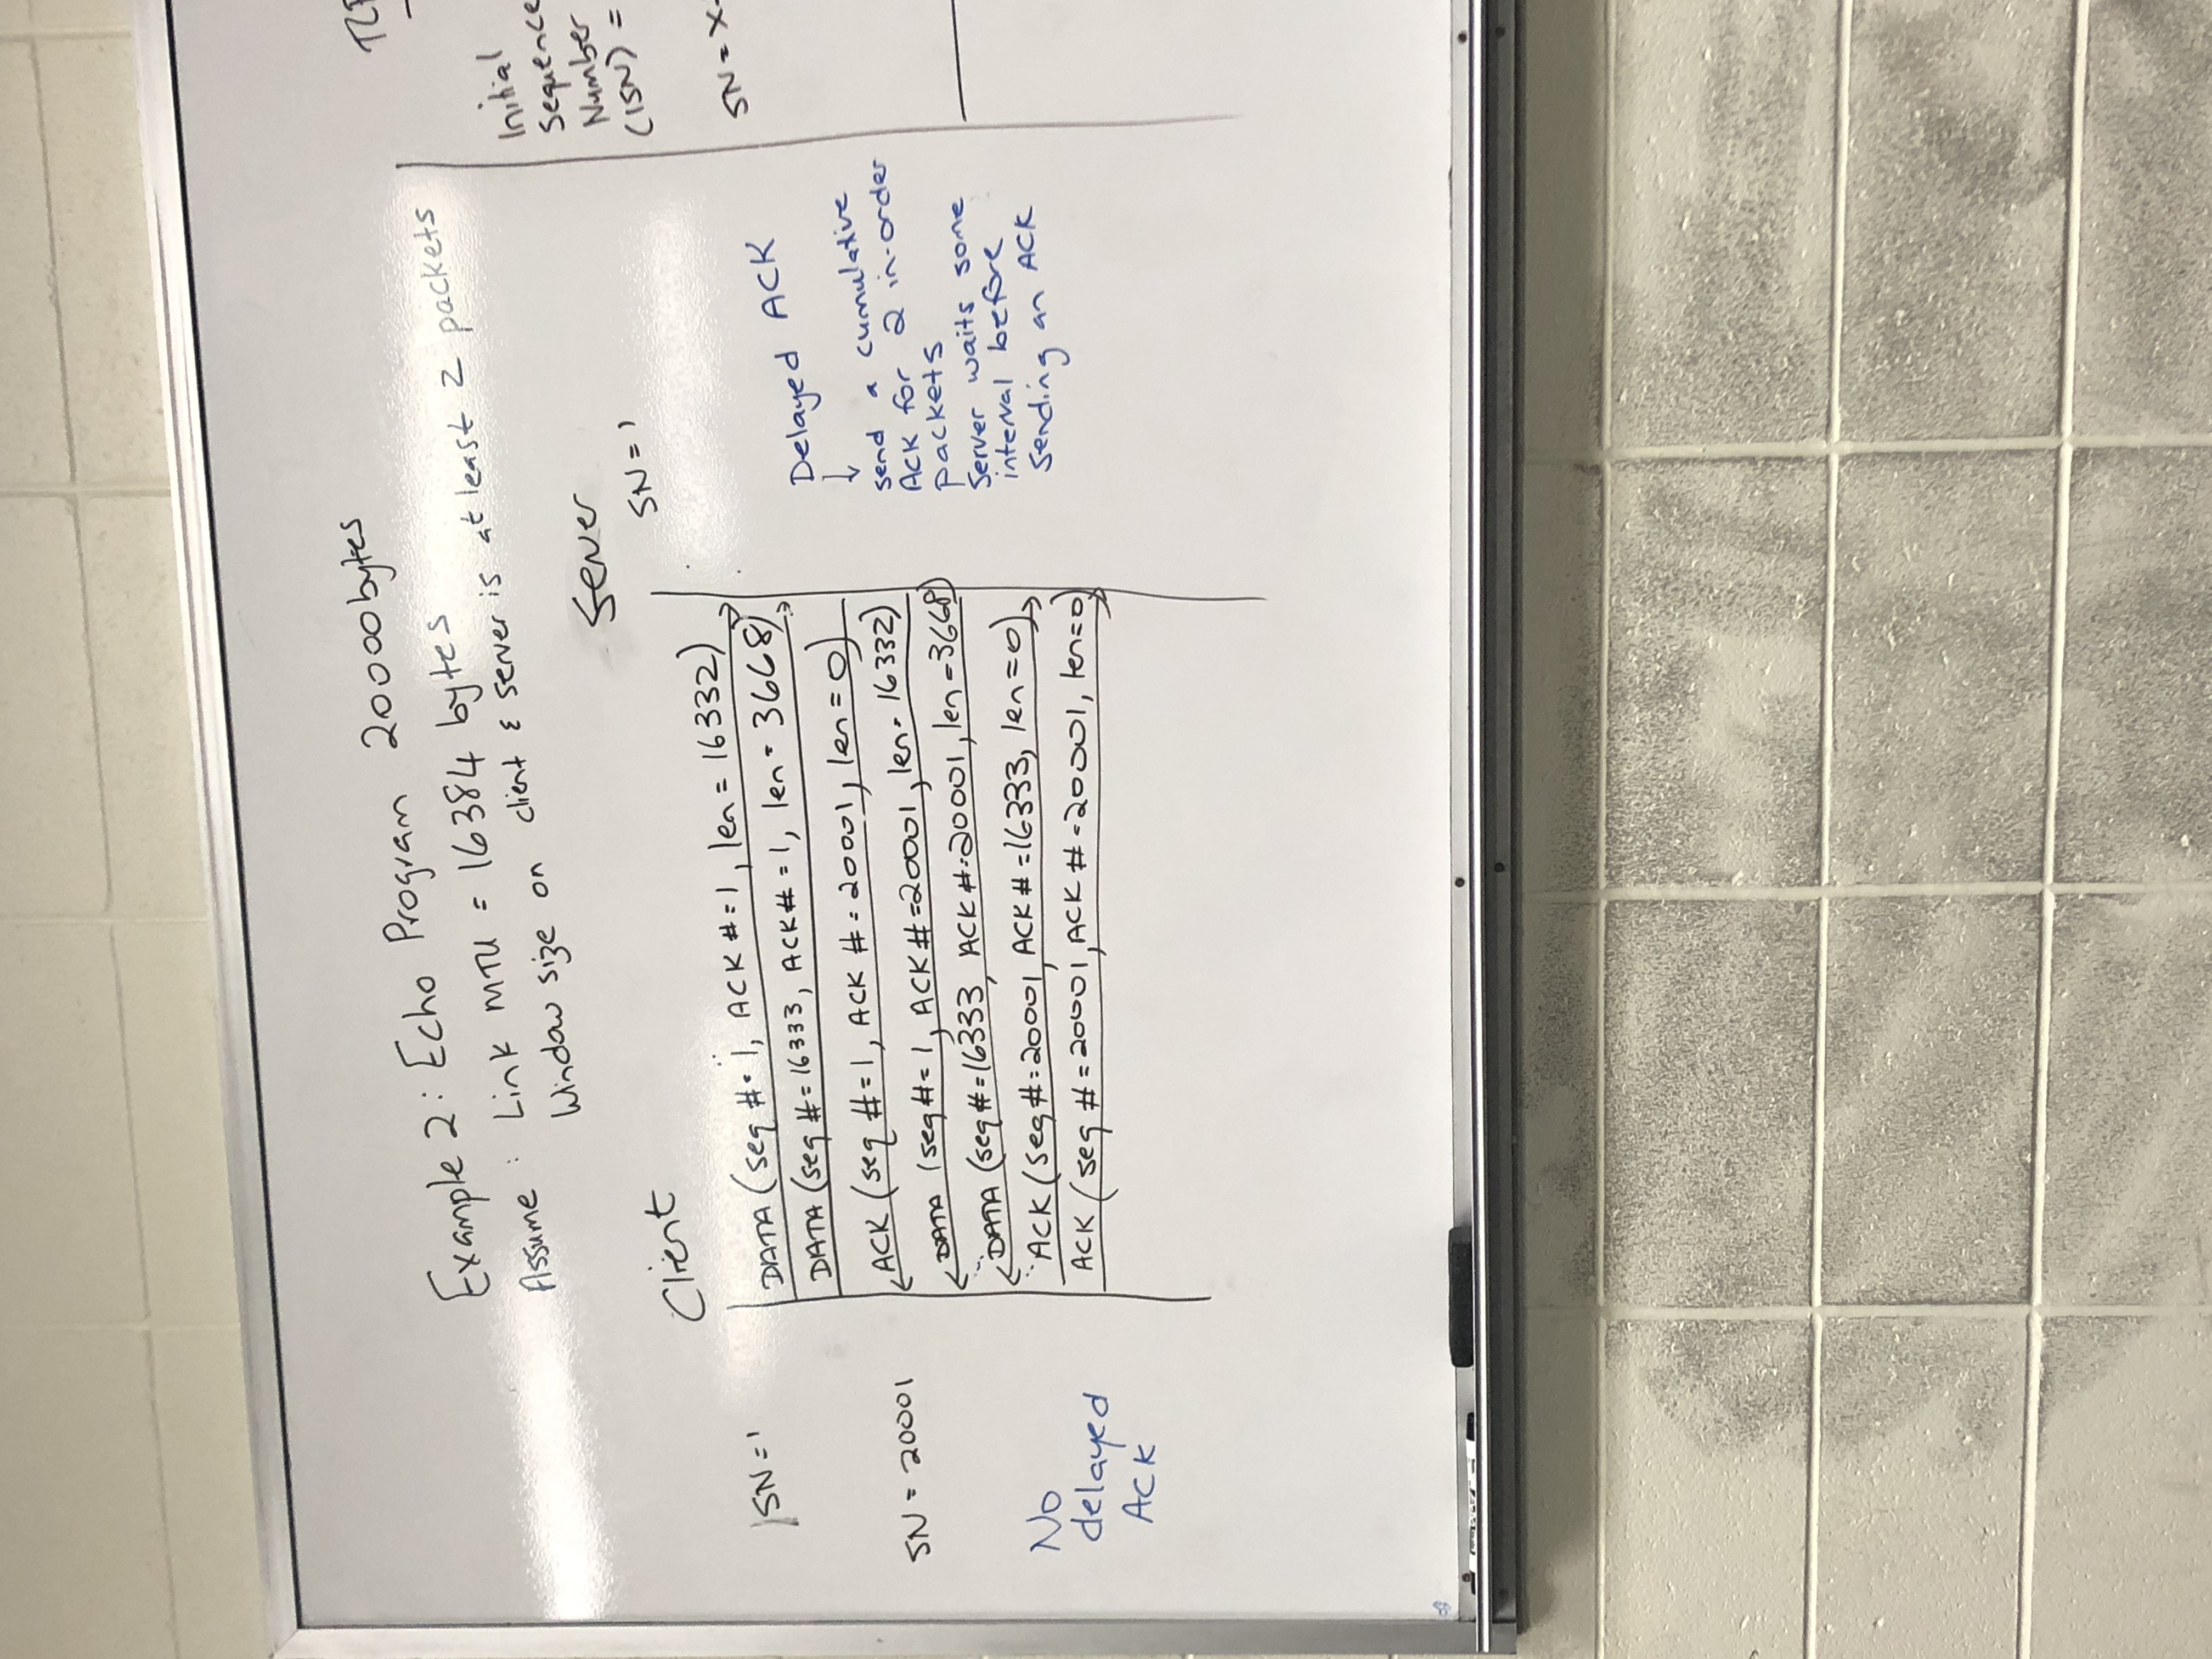 Example 2: Echo Program 20000bytes
Assume: Link MTU = 16384 bytes
Window size on client & server is at least 2 packets
Client
Server
SN=1
SN=1
DATA (seq #=1, ACK #=1, len=16332)
DATA (seq #=16333, ACK#=1, len=3668)
ACK (seq #=1, ACK #=20001, len=0)
SN=20001
DATA (seq#=1, ACK#=20001, len=16332)
DATA (seq#=16333, ACK#=20001, len=3668)
ACK (seq#=20001, ACK#=16333, len=0)
ACK (seq #=20001, ACK #=20001, len=0)
No
delayed
ACK
Delayed ACK
↓
send a cumulative
ACK for 2 in-order
packets
Server waits some
interval before
sending an ACK
Initial
Sequence
Number
(ISN) =
SN=X